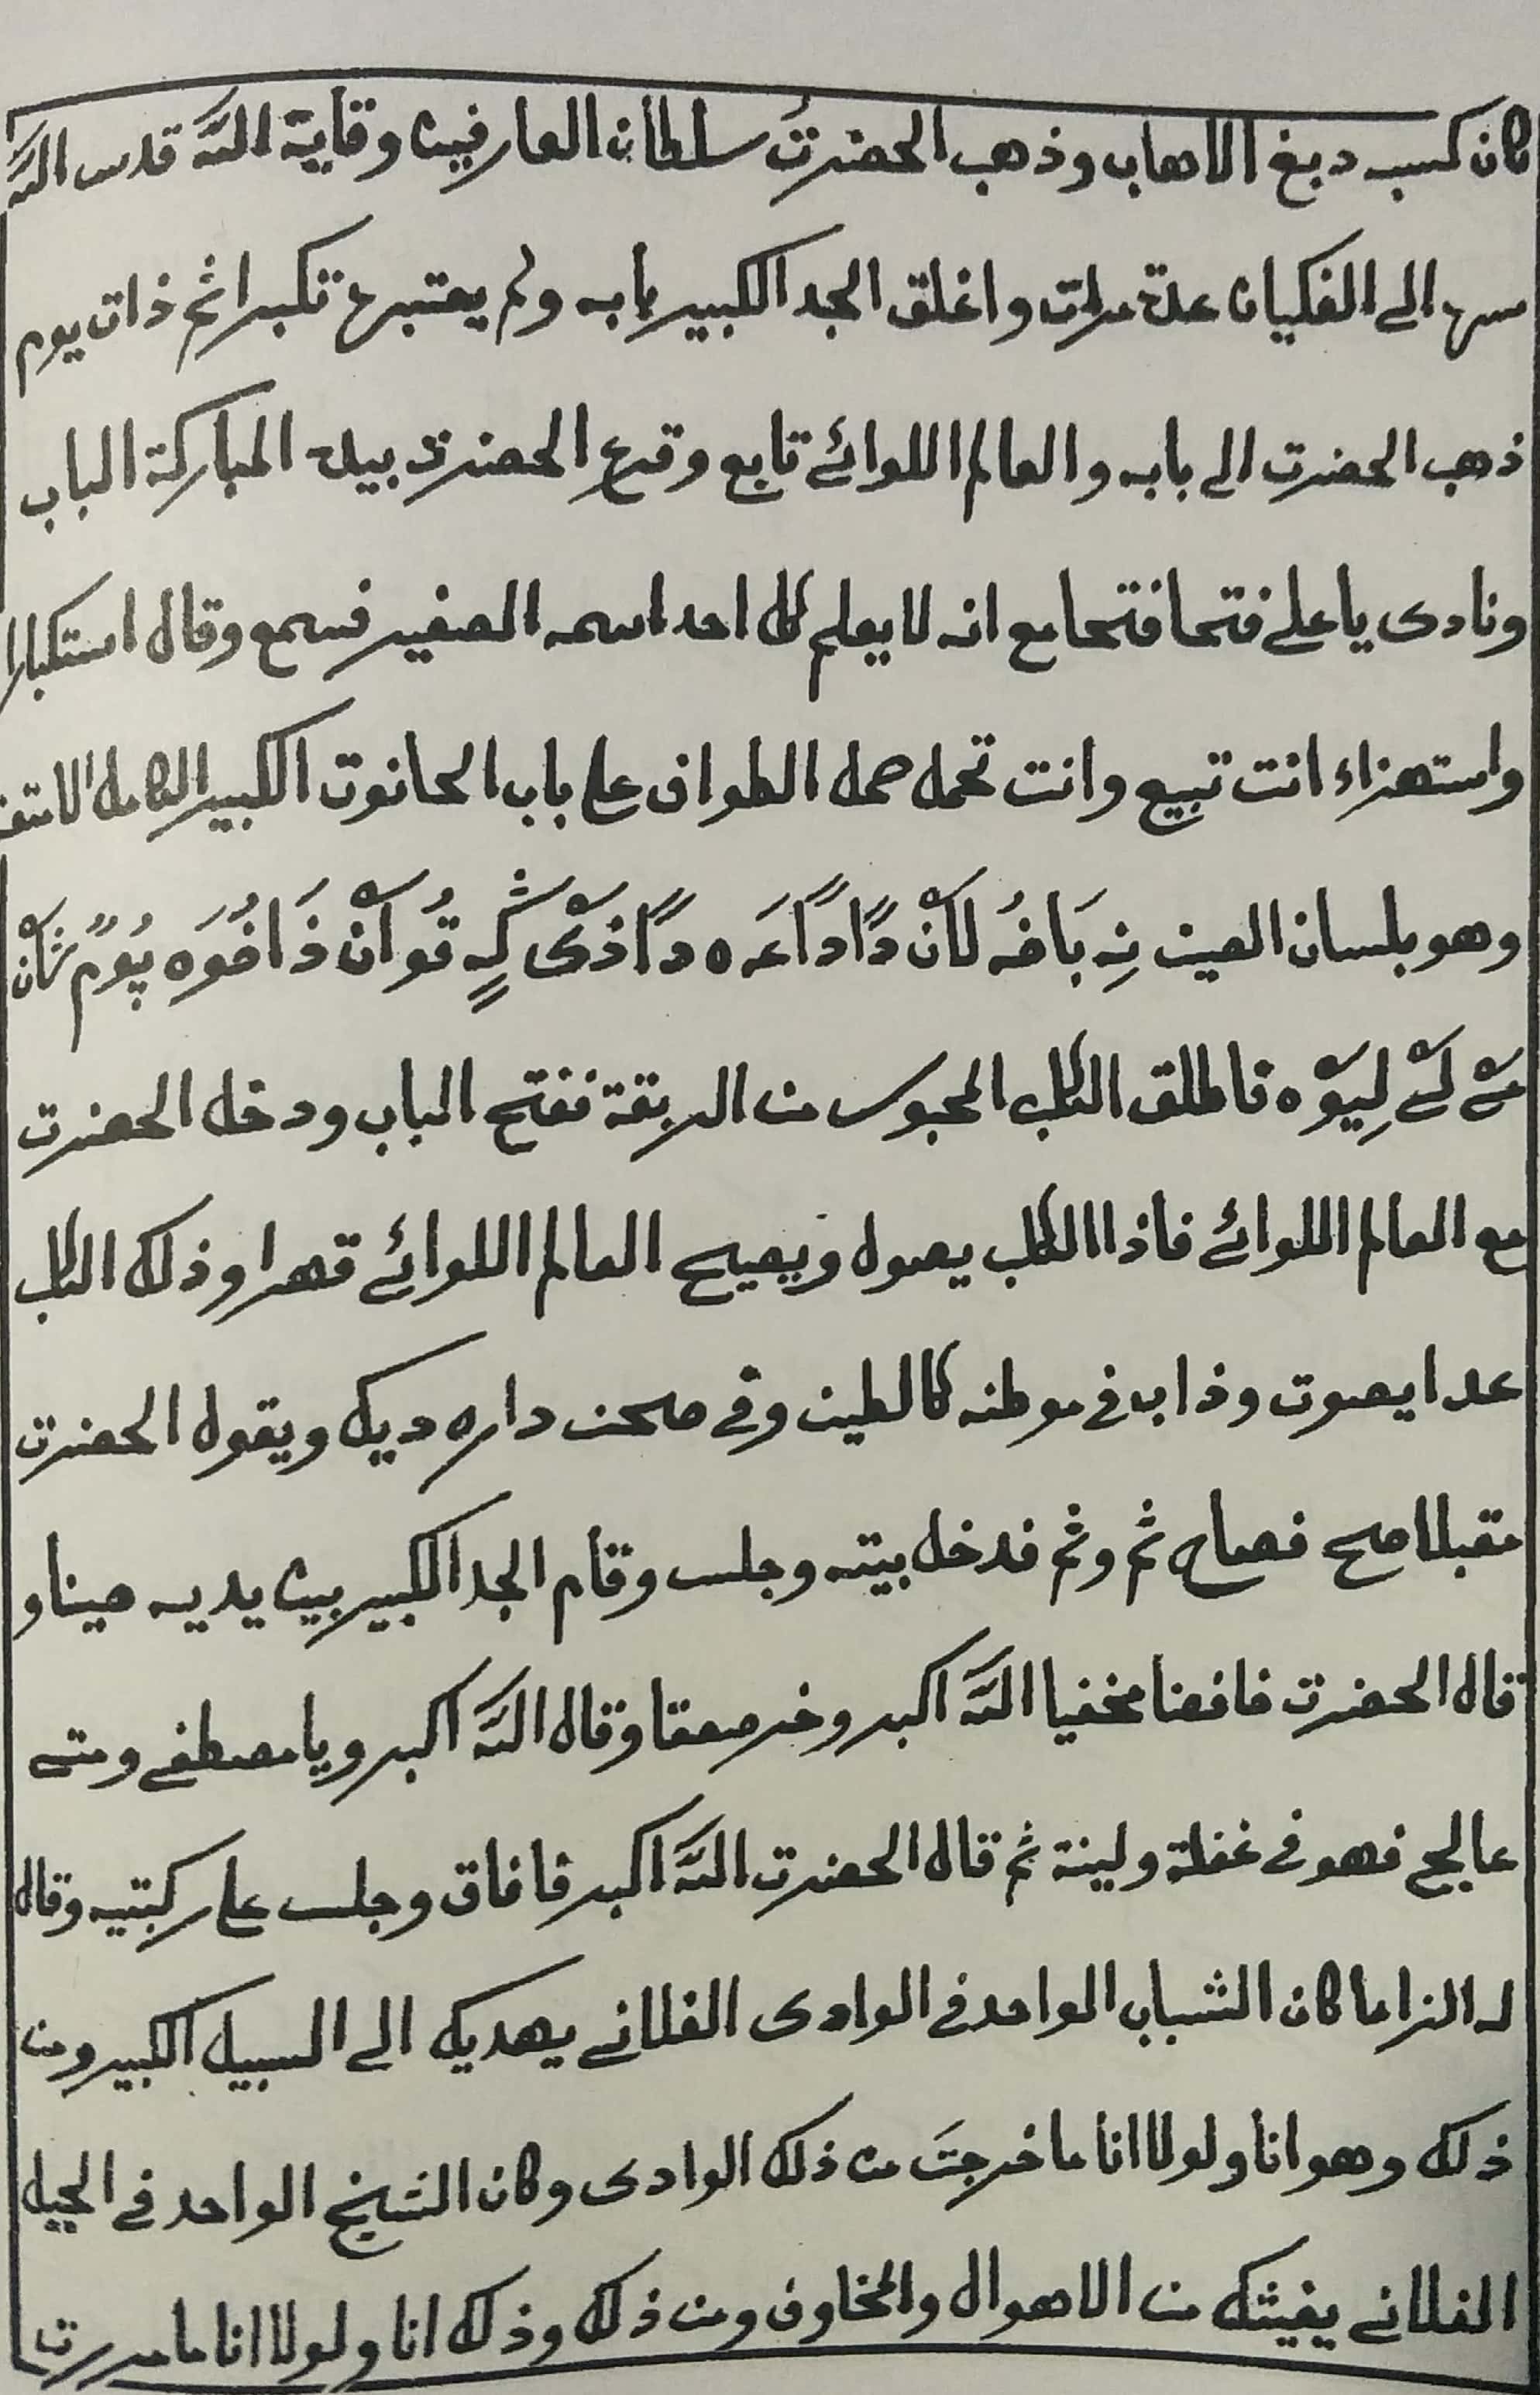 كان كسب دبغ الاهاب وذهب الحضرت سلطان العارفين وقاية الله قدس الله
سره الى الفكيان عدة مرات واغلق الجد الكبير بابه ولم يعتبره تكبرا ثم ذات يوم
ذهب الحضرت الى بابه والعالم اللوائے تابع وقرع الحضرت بيده المباركة الباب
ونادى يا علے فتحا فتحا مع انه لا يعلم كل احد اسمه الصغير فسمع وقال استكبارا
واستهزاء انت تبيع وانت تحمل حمل الطواف على باب الحانوت الكبير الكامل
وهو بلسان الصين نِہ بَاخُہ لَانْ
فاطلق الكلب المحبوس من الربقة ففتح الباب ودخل الحضرت
مع العالم اللوائے فاذا الكلب يصول ويصيح العالم اللوائے قهرا وذلك الكلب
عدا يصوت وذاب في موطنه كالطين وفے صحن داره ديك ويقول الحضرت
مقبلا صح فصاح ثم وثم فدخل بيته وجلس وقام الجد الكبير بين يديه حينا و
قال الحضرت خافضا مخفيا الله اكبر وخر صعقا وقال الله اكبر ويا مصطفے ومتے
عالج فهو في غفلة ولينة ثم قال الحضرت الله اكبر فافاق وجلس على ركبتيه وقال
له الزاما كان الشباب الواحد في الوادى الفلانے يهديك الى السبيل الكبير ومن
ذلك وهو انا ولولا انا ما خرجتَ من ذلك الوادى وكان الشيخ الواحد فے الجبل
الفلانے يغيثك من الاهوال والمخاوف ومن ذلك وذلك انا ولولا انا ما مررت